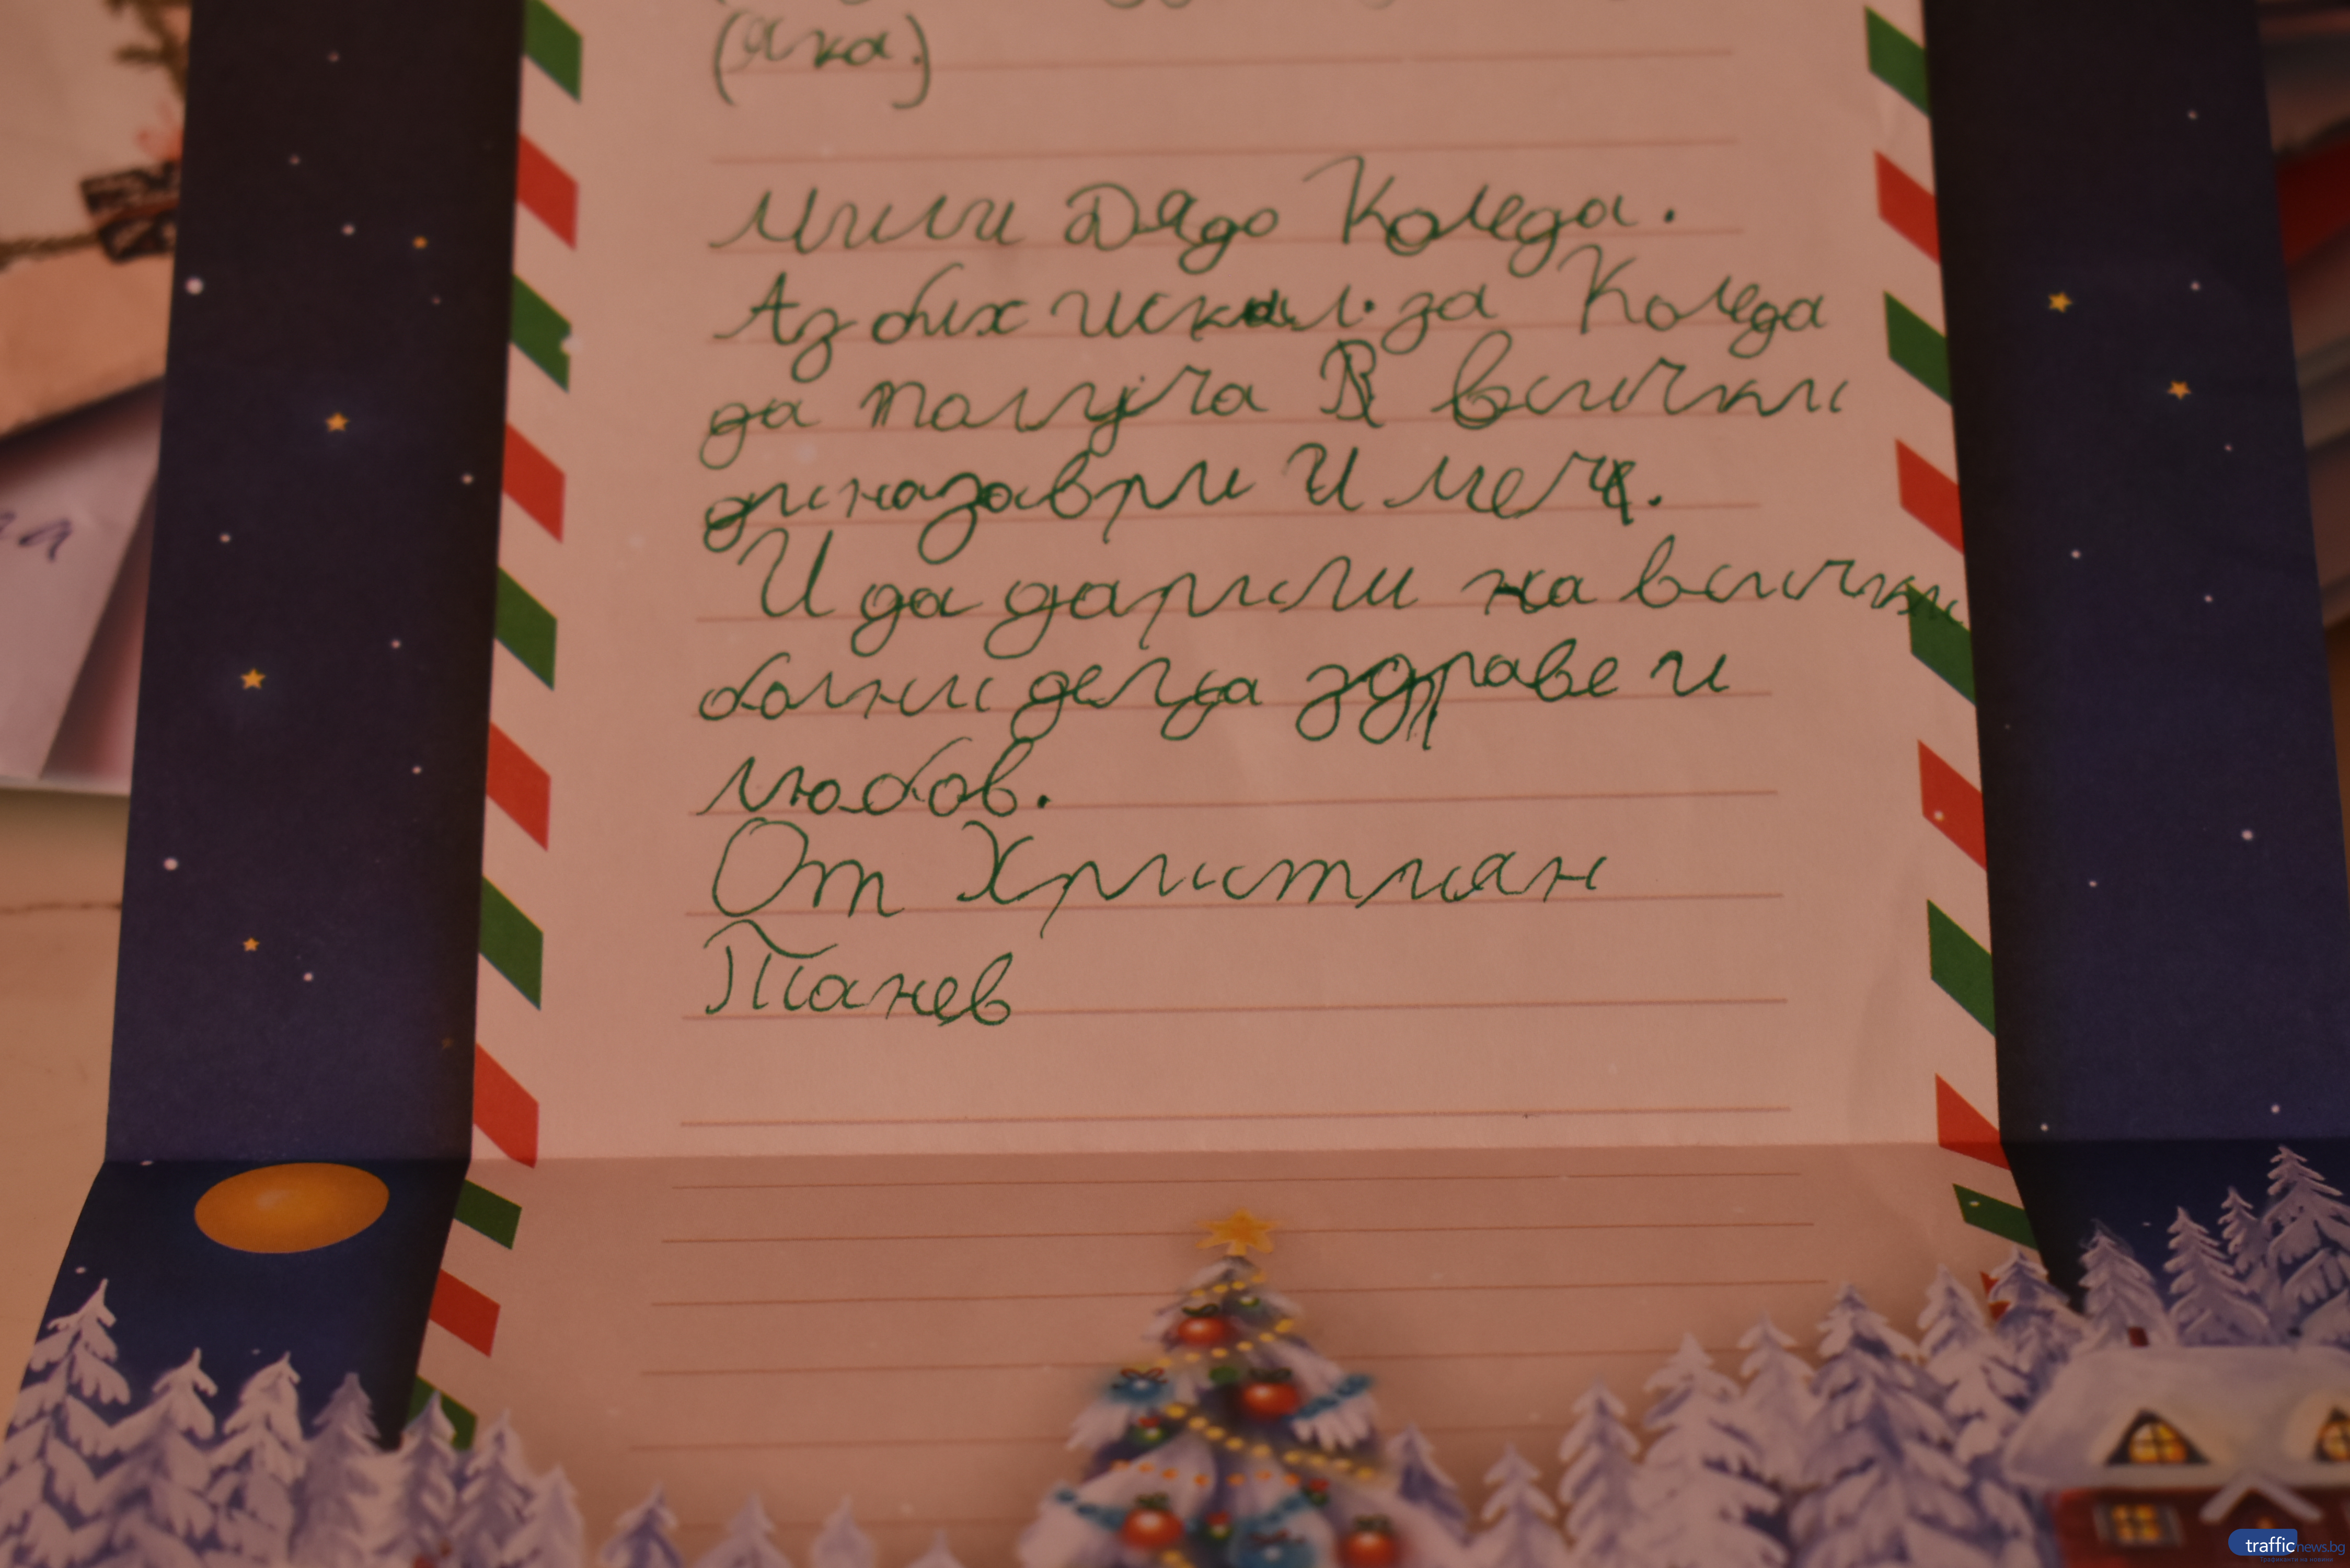 (яка.)
Мили Дядо Коледа.
Аз бих искал за Коледа
да получа всички
диназаври и меч.
И да дариш на всички
болни деца здраве и
любов.
От Християн
Танев
trafficnews.bg